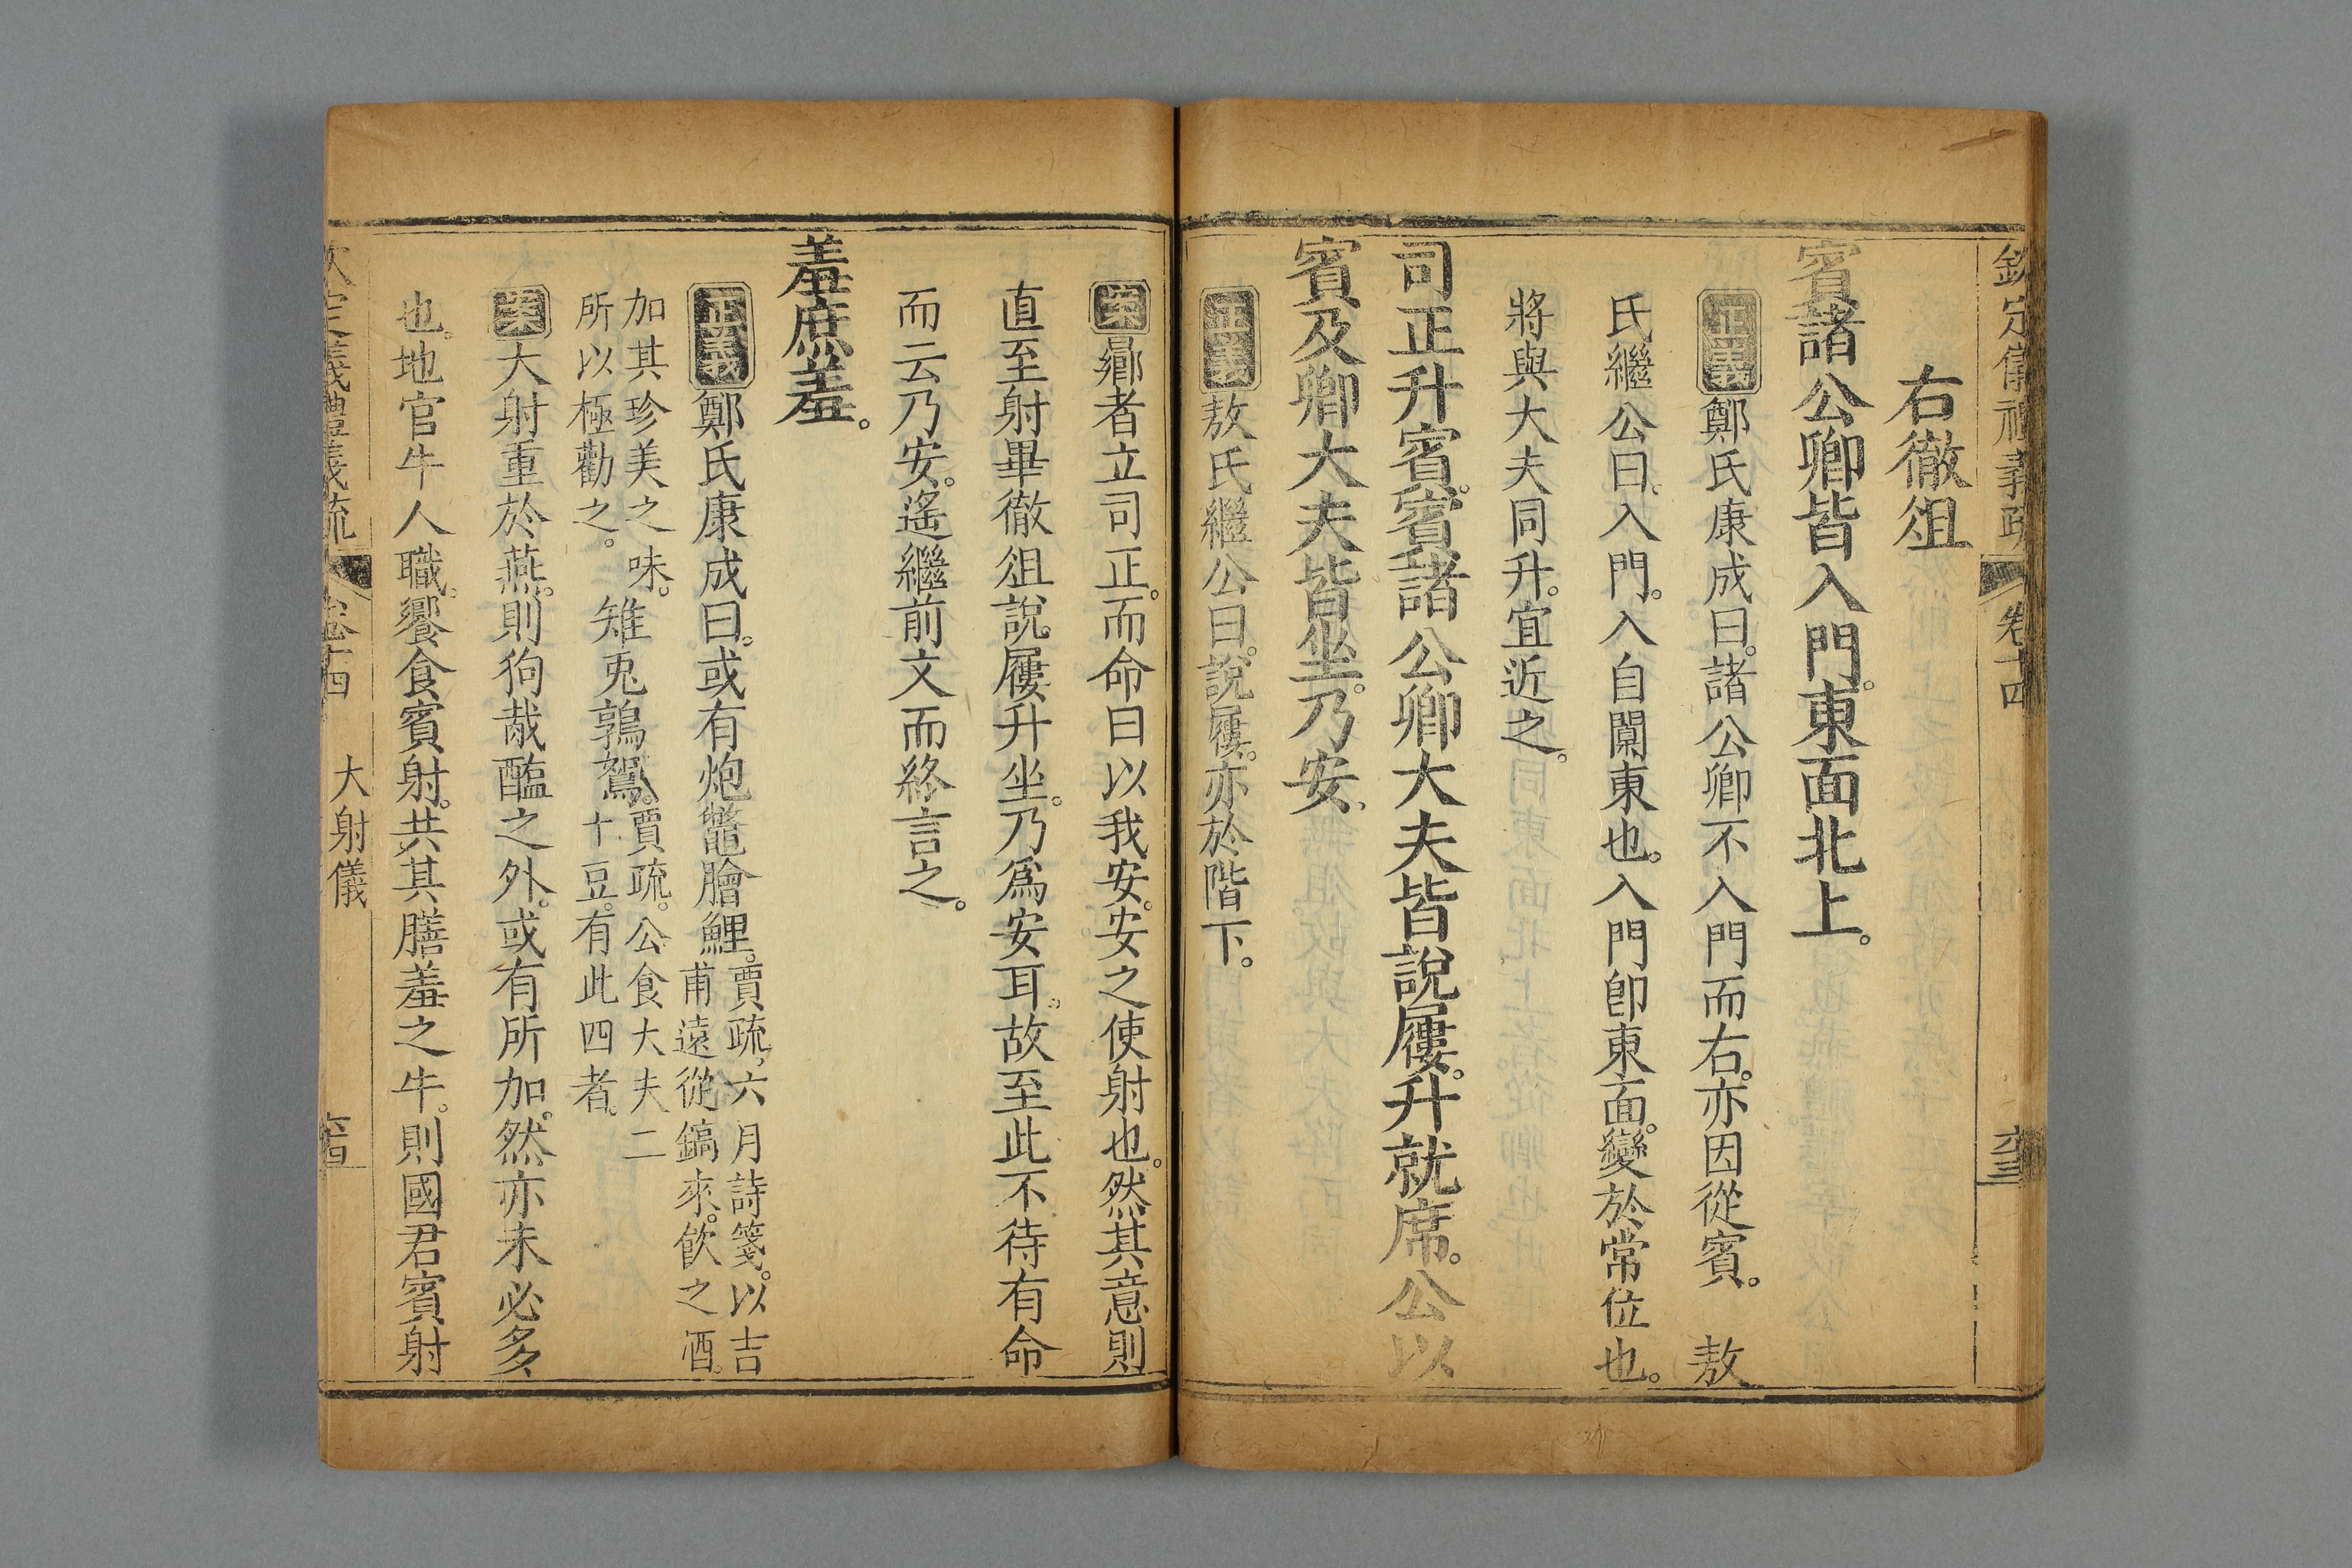 欽定儀禮義疏 卷十四
右徹俎
賓諸公卿皆入門。東面北上。
正義鄭氏康成曰。諸公卿不入門而右。亦因從賓。 敖
氏繼公曰。入門。入自闑東也。入門卽東面。變於常位也。
將與大夫同升。宜近之。
司正升賓。賓諸公卿大夫皆說屨。升就席。公以
賓及卿大夫皆坐。乃安。
正義敖氏繼公曰。說屨。亦於階下。
案鄉者立司正。而命曰以我安。安之使射也。然其意則
直至射畢徹俎說屨升坐。乃爲安耳。故至此不待有命
而云乃安。遙繼前文而終言之。
羞庶羞。
正義鄭氏康成曰。或有炮鼈膾鯉。賈疏。六月詩箋。以吉
甫遠從鎬來。飮之酒。
加其珍美之味。
所以極勸之。
雉兎鶉鴽。賈疏。公食大夫二
十豆。有此四者。
案大射重於燕。則狗胾醢之外。或有所加。然亦未必多
也。地官牛人職。饗食賓射。共其膳羞之牛。則國君賓射
欽定儀禮義疏 卷十四 大射儀